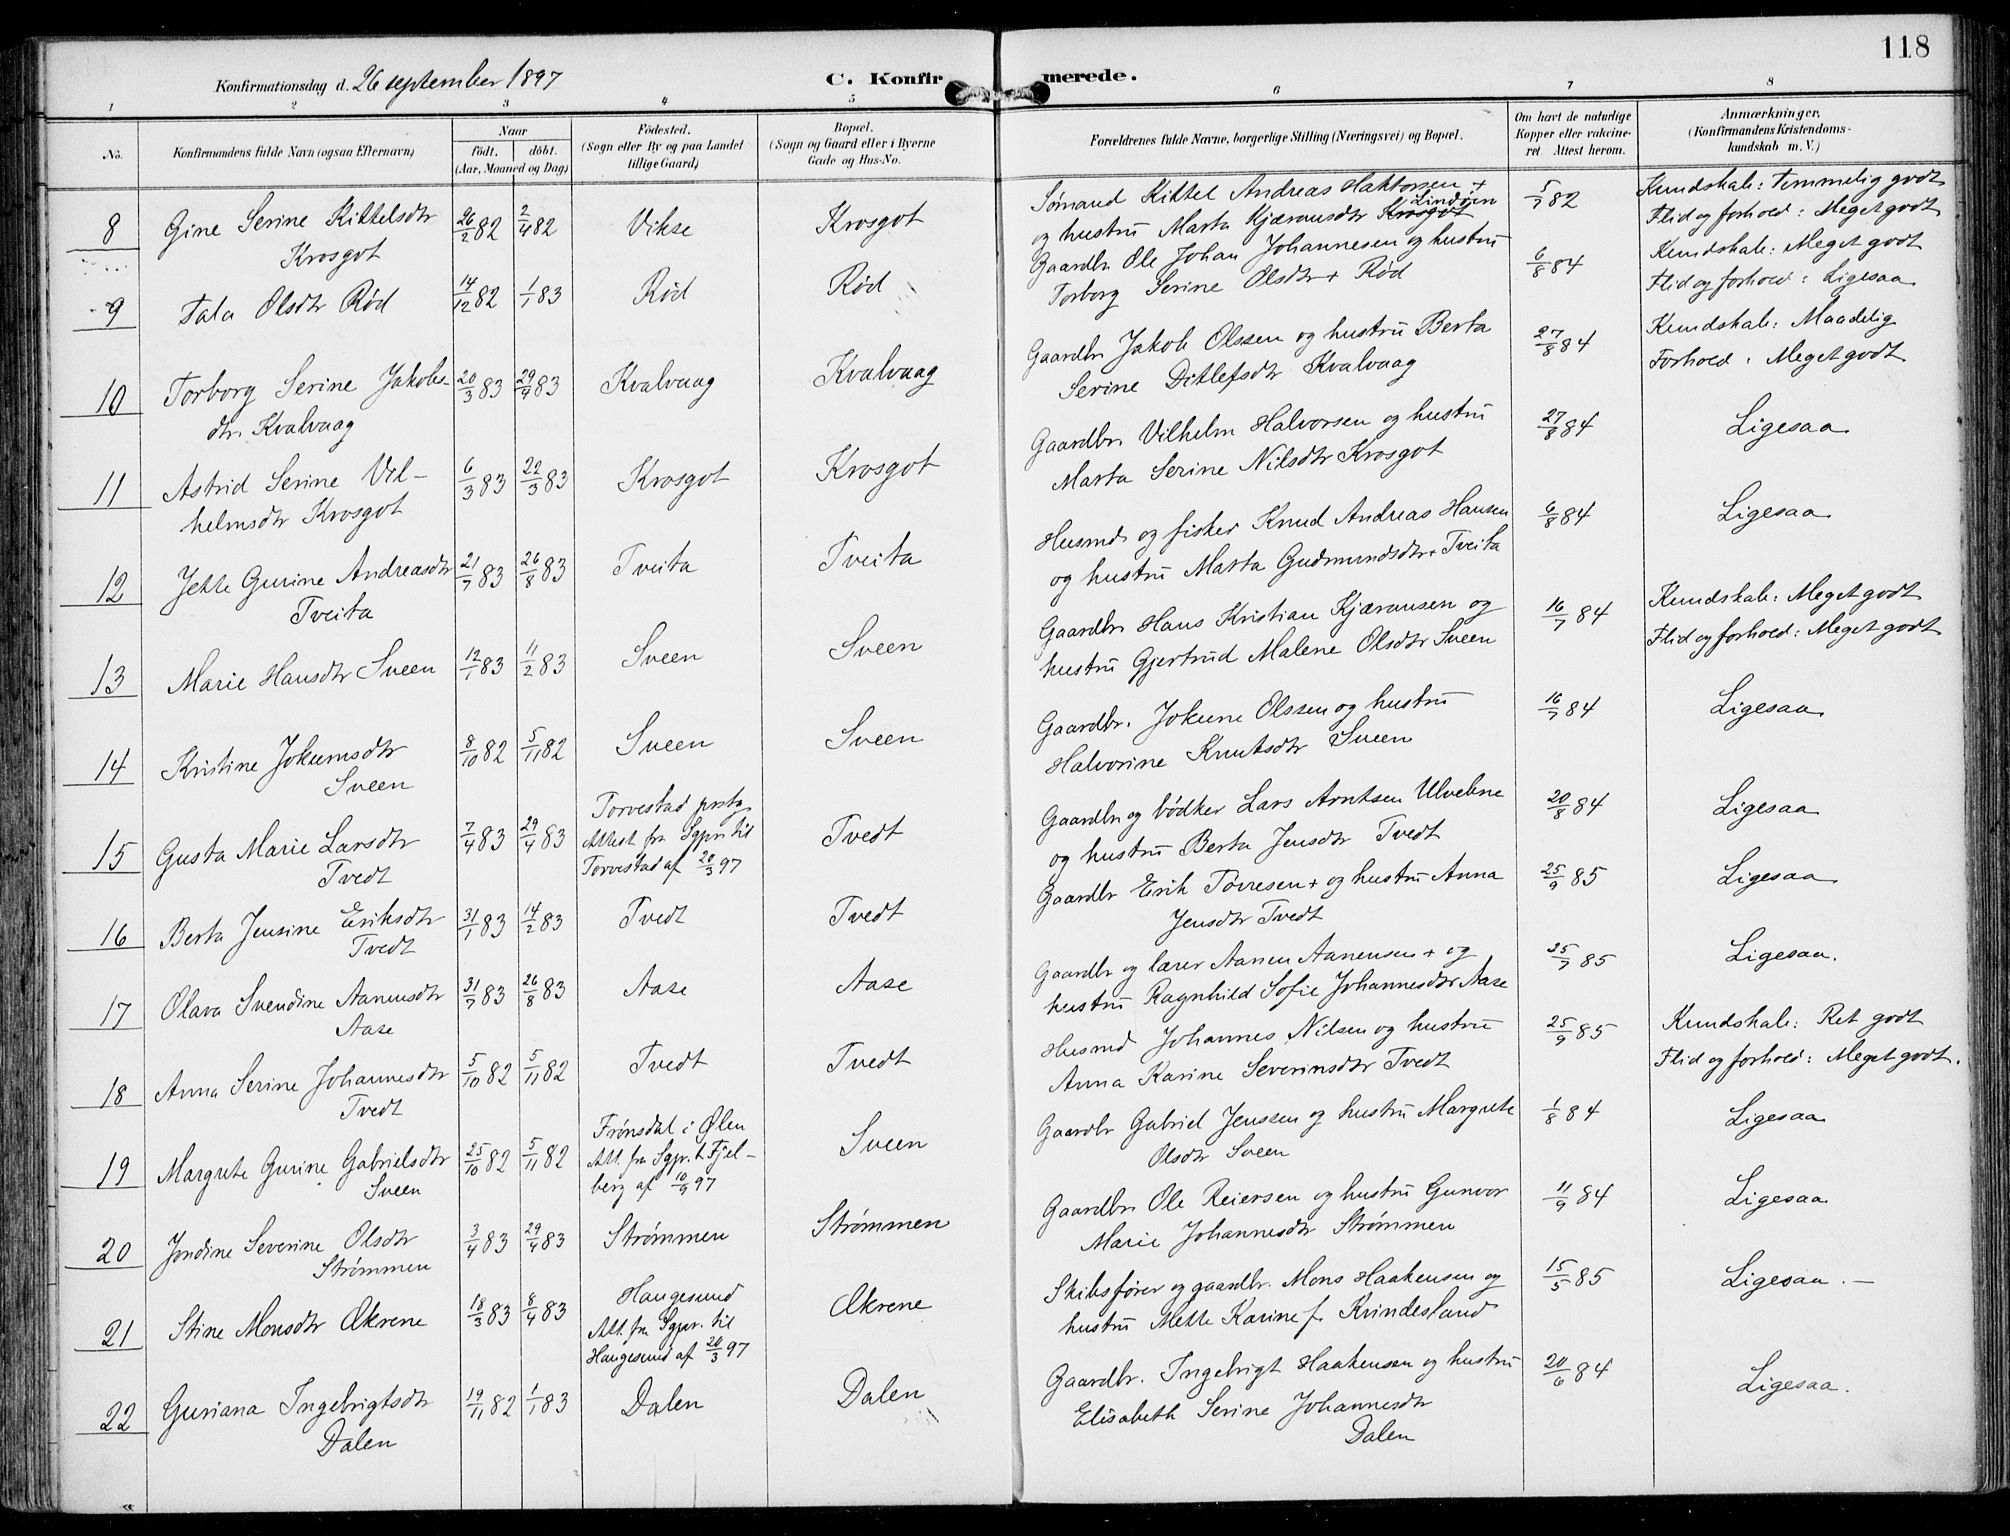 118
Konfirmationsdag d. 26 september 1897
C. Konfirmerede.
1 2 3 4 5 6 7 8
No.
Konfirmandens fulde Navn (ogsaa Efternavn)
Naar
født. døbt.
(Aar, Maaned og Dag)
Fødested.
(Sogn eller By og paa Landet
tillige Gaard.)
Bopæl.
(Sogn og Gaard eller i Byerne
Gade og Hus-No.
Forældrenes fulde Navne, borgerlige Stilling (Næringsvei) og Bopæl.
Om havt de naturlige
Kopper eller vakcine-
ret. Attest herom.
Anmærkninger,
(Konfirmandens Kristendoms-
kundskab m. V.)
8 Gine Serine Kittelsdtr 26/2 82 2/4 82 Vikse Krosgot
Krosgot
Sømand Kittel Andreas Haktorsen + 5/7 82 Kundskab: Temmelig godt
Lindøen
og hustru Marta Kjæransdtr Krosgot Flid og forhold: Meget godt
9 Tala Olsdtr Rød 14/12 82 1/1 83 Rød Rød
Gaardbr. Ole Johan Johannesen og hustru 6/8 84 Kundskab: Meget godt
Torborg Serine Olsdtr + Rød Flid og forhold: Ligesaa
10 Torborg Serine Jakobs- 20/3 83 29/4 83 Kvalvaag Kvalvaag
dtr. Kvalvaag
Gaardbr. Jakob Olssen og hustru Berta 27/8 84 Kundskab: Maadelig
Serine Ditlefsdtr Kvalvaag Forhold: Meget godt
11 Astrid Serine Vil- 6/3 83 22/3 83 Krosgot Krosgot
helmsdtr Krosgot
Gaardbr. Vilhelm Halvorsen og hustru 27/8 84 Ligesaa
Marta Serine Nilsdtr Krosgot
12 Jette Gurine Andreasdtr 21/7 83 26/8 83 Tveita Tveita
Tveita
Husmd. og fisker Knud Andreas Hansen 6/8 84 Ligesaa
og hustru Marta Gudmundsdtr + Tveita
13 Marie Hansdtr Sveen 12/1 83 11/2 83 Sveen Sveen
Gaardbr. Hans Kristian Kjæransen og 16/7 84 Kundskab: Meget godt
hustru Gjertrud Malene Olsdtr Sveen Flid og forhold: Meget godt
14 Kristine Jokumsdtr 8/10 82 5/11 82 Sveen Sveen
Sveen
Gaardbr. Jokum Olssen og hustru 16/7 84 Ligesaa
Halvorine Knutsdtr Sveen
15 Gusta Marie Larsdtr 7/4 83 29/4 83 Torvestad prstg. Tvedt
Tvedt Attest fra Sgpr. til
Torvestad af 20/3 97
Gaardbr. og bødker Lars Arntsen Ulvebne 20/8 84 Ligesaa
og hustru Berta Jensdtr Tvedt
16 Berta Jensine Eriksdtr 31/1 83 14/2 83 Tvedt Tvedt
Tvedt
Gaardbr Erik Torresen + og hustru Anna 25/9 85 Ligesaa
Jensdtr Tvedt
17 Olava Svendine Aanensdtr 31/7 83 26/8 83 Aase Aase
Aase
Gaardbr og lærer Aanen Aanensen + og 25/7 85 Ligesaa.
hustru Ragnhild Sofie Johannesdtr Aase
18 Anna Serine Johannesdtr 5/10 82 5/11 82 Tvedt Tvedt
Tvedt
Husmd Johannes Nilsen og hustru 25/9 85 Kundskab: Ret godt
Anna Karine Severinsdtr Tvedt Flid og forhold: Meget godt.
19 Margrete Gurine Gabrielsdtr 25/10 82 5/11 82 Frønsdal i Ølen Sveen
Sveen Att. fra Sgpr. t. Fjel-
berg af 10/9 97
Gaardbr Gabriel Jenssen og hustru Margrete 1/8 84 Ligesaa
Olsdtr Sveen
20 Jondine Severine Olsdtr 3/4 83 29/4 83 Strømmen Strømmen
Strømmen
Gaardbr. Ole Reiersen og hustru Gunvor 11/9 84 Ligesaa
Marie Johannesdtr Strømmen
21 Stine Monsdtr Økrene 18/3 83 8/4 83 Haugesund Økrene
Att. fra Sgpr. til
Haugesund af 20/3 97
Skibsfører og gaardbr. Mons Haakensen og 15/5 85 Ligesaa. —
hustru Mette Karine f. Kvindesland
22 Guriana Ingebrigtsdtr 19/11 82 1/1 83 Dalen Dalen
Dalen
Gaardbr. Ingebrigt Haakensen og hustru 20/6 84 Ligesaa.
Elisabeth Serine Johannesdtr
Dalen